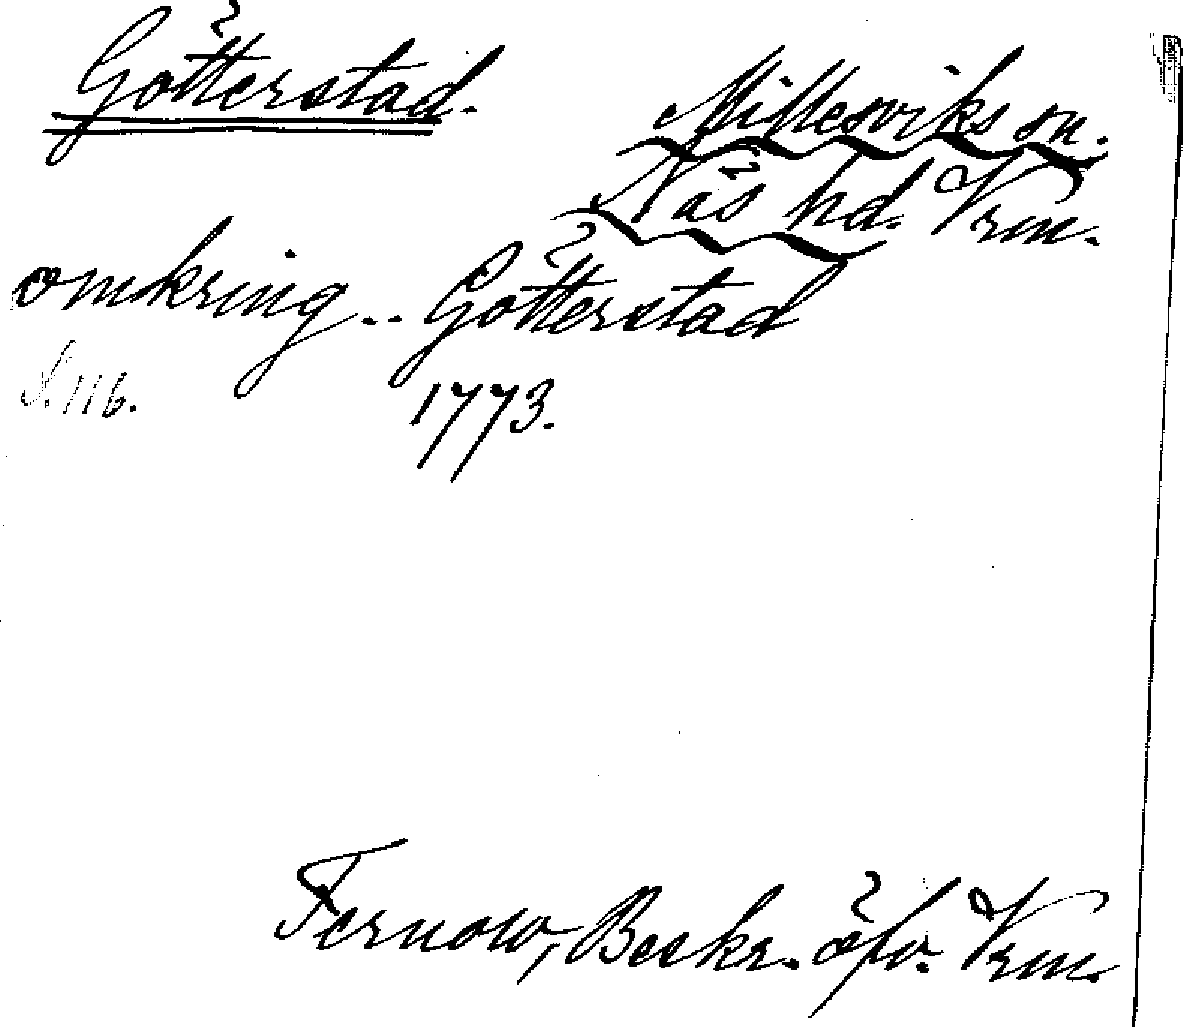 Götterstad.
Millesviks sn.
Näs hd. Vrm.
omkring .. Götterstad
S. 116.
1773.
Fernow, Beskr. öfv. Vrm.